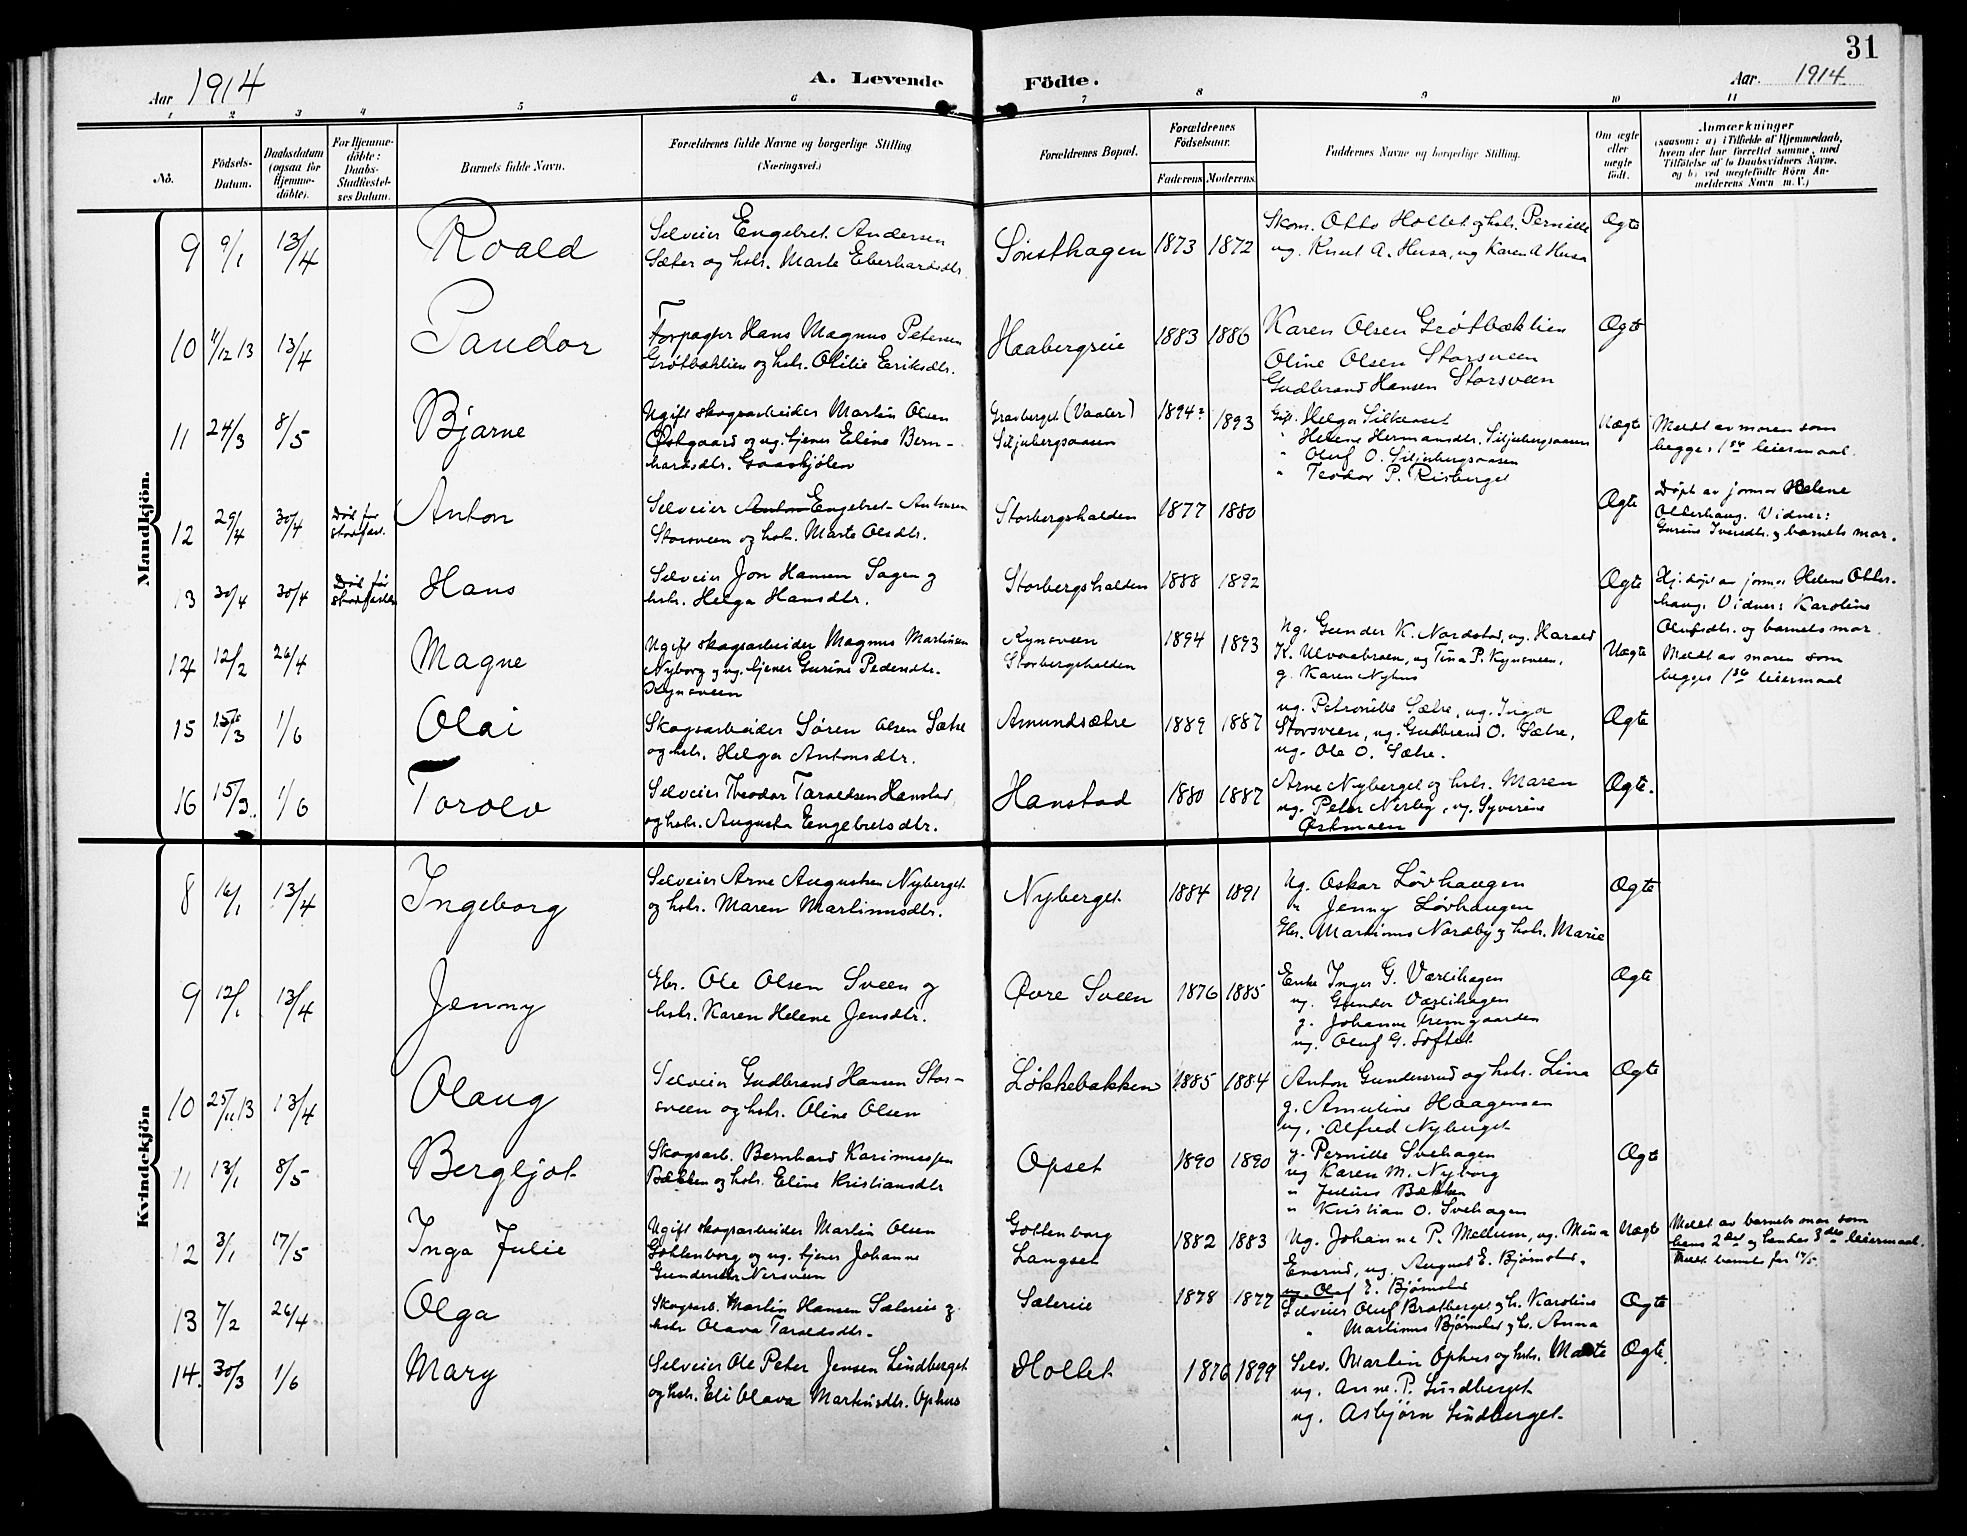 31
Aar 1914
A. Levende
Födte.
Aar. 1914
1 2 3 4 5 6 7 8 9 10 11
No.
Födsels-Datum.
Daabsdatum (ogsaa for Hjemme-döbte).
For Hjemme-döbte: Daabs-Stadfæstel-ses Datum.
Barnets fulde Navn.
Forældrenes fulde Navne og borgerlige Stilling
(Næringsvei.)
Forældrenes Bopæl.
Forældrenes Födselsaar.
Faderens Moderens
Faddernes Navne og borgerlige Stilling.
Om ægte eller uægte födt.
Anmærkninger
(saasom: a) i Tilfælde af Hjemmedaab,
hvem der har forrettet samme, med
Tilföielse af to Daabsvidners Navne,
og b) ved uægtefödte Börn An-
melderens Navn m. V.)
Mandkjön.
9 9/1 13/4 Roald
Selveier Engebret Andersen
Sæter og hstr. Marte Eberhardsdtr.
Sønsthagen 1873 1872
Skom. Otto Hollet og hstr. Pernille
ug. Knut A. Husa, ug Karen A Husa
Ægte
10 11/12 13 13/4 Pandor
Forpagter Hans Magnus Petersen
Grøtbæklien og hstr. Otilie Eriksdtr.
Haabergseie 1883 1886
Karen Olsen Grøtbæklien
Oline Olsen Storsveen
Gudbrand Hansen Storsveen
Ægte
11 24/3 8/5 Bjarne
Ugift skogsarbeider Martin Olsen
Østgaard og ug. tjener Eline Bern-
hardsdtr. Graaskjølen
Grasberget (Vaaler)
Siljubergsaasen
1894? 1893
Gift. Helga Silkeset
" Helene Hermansdtr. Siljubergsaasen
" Oluf O. Siljubergsaasen
" Teodor P. Risberget
Uægte
Meldt av moren som
begges 1ste leiermaal.
12 29/4 30/4 Død før stadfæst. Anton
Selveier Anton Engebret Antonsen
Storsveen og hstr. Marte Olsdtr.
Storbergshalden 1877 1880
Ægte
Døpt av jormor Helene
Otterhaug. Vidner:
Gurine Iversdtr. og barnets mor.
13 30/4 30/4 Død før stadfæstelse Hans
Selveier Jon Hansen Sagen og
hstr. Helga Hansdtr.
Storbergshalden 1888 1892
Ægte
Hj. døpt av jormor Helene Otter-
haug. Vidner: Karoline
Olufsdtr. og barnets mor.
14 12/2 26/4 Magne
Ugift skogsarbeider Magnus Martinsen
Nyborg og ug. tjener Gurine Pedersdtr.
Kynsveen
Kynsveen
Storbergshalden
1894 1893
Ug. Gunder K. Nordstad, ug. Harald
K. Ulvaabroen, ug Tina P. Kynsveen,
g. Karen Nyhus
Uægte
Meldt av moren som
begges 1ste leiermaal
15 15/3 1/6 Olai
Skogsarbeider Søren Olsen Sætre
og hstr. Helga Antonsdtr.
Amundsætre 1889 1887
ug. Petronille Sætre, ug. Inga
Storsveen, ug. Gudbrand O. Sætre,
ug. Ole O. Sætre.
Ægte
16 15/3 1/6 Torolv
Selveier Theodor Taraldsen Hanstad,
og hstr. Augusta Engebretsdtr.
Hanstad 1880 1887
Arne Nyberget og hstr. Maren
ug. Peter Nerby, ug. Syverine
Østmoen
Ægte.
Kvindekjön
8 16/1 13/4 Ingeborg
Selveier Arne Augustsen Nyberget
og hstr. Maren Martinusdtr.
Nyberget 1884 1891
Ug. Oskar Løvhaugen
" Jenny Løvhaugen
Gbr. Martinus Nordby og hstr. Marie
Ægte
9 12/1 13/4 Jenny
Gbr. Ole Olsen Sveen og
hstr. Karen Helene Jensdtr.
Øvre Sveen 1876 1885
Enke Inger G. Værlihagen
ug. Gunder Værlihagen
g. Johanne Fremgaarden
ug. Oluf G. Loftet
Ægte
10 25/11 13 13/4 Olaug
Selveier Gudbrand Hansen Stor-
sveen og hstr. Oline Olsen
Løkkebakken 1885 1884
Anton Gundersrud og hstr. Lina
g. Amuline Haagensen
ug. Alfred Nyberget
Ægte
11 13/1 8/5 Bergljot
Skogsarb. Bernhard Karinussen
Bækken og hstr. Eline Kristiansdtr
Opset 1890 1890
g. Pernille Svehagen
ug Karen M. Nyborg
" Julius Bækken
" Kristian O. Svehagen
Ægte
12 3/1 17/5 Inga Julie
Ugift skogsarbeider Martin Olsen
Gottenborg og ug. tjener Johanne
Gundersdtr Nersveen
Gottenborg
Langset
1882 1883
Ug. Johanne P. Mellum, ug. Mina
Ensrud, ug. August E. Bjørnstad.
ug. Olaf E. Bjørnstad
Uægte
Meldt av barnets mor som
hans 2det og hendes 3die leiermaal.
Meldt barnet før 17/5.
13 7/2 26/4 Olga
Skogsarb. Martin Hansen Sætereie og
hstr Olava Taraldsdtr.
Sætereie 1878 1877
Selveier Oluf Bratberget og h. Karoline
" Martinus Bjørnstad og hs. Anna
Ægte
14. 30/3 1/6 Mary
Selveier Ole Peter Jensen Lindberget
og hstr. Eli Olava Martinsdtr. Ophus
Hollet 1876 1899
Selv. Martin Ophus og hstr. Marte
ug. Anne P. Lindberget
ug. Asbjørn Lindberget
Ægte.